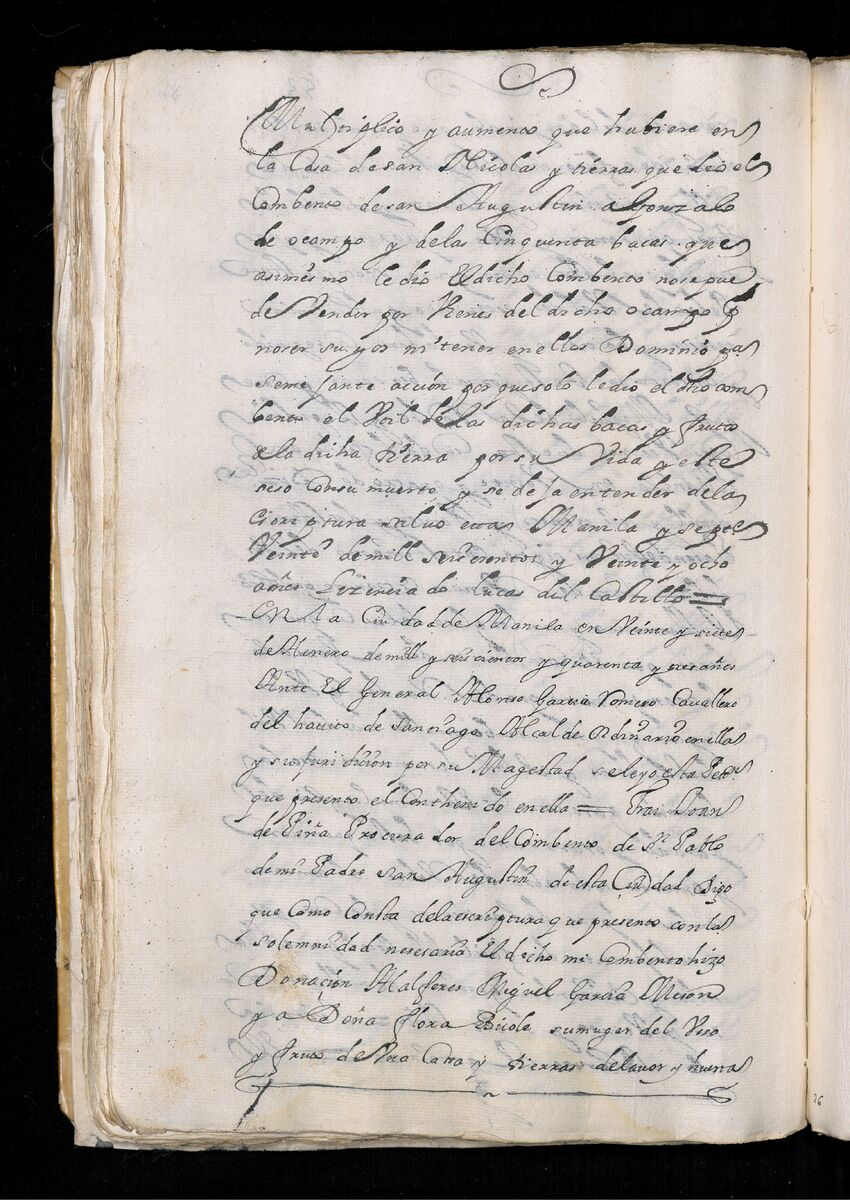 Multiplico y aumento que hubiere en
la Casa de san Nicolas y tierras que dio el
Combento de san Augustin a Gonzalo
de ocampo y de las Cinquenta bacas que
asimesmo le dio El dicho Combento no se pue
de Vender por Vienes del dicho ocampo p
no ser suyos ni tener en ellos Dominio pa
seme jante acción por que solo le dio el dho com
bento el Vtil de las dichas bacas y fruto
de la dicha tierra por su Vida y este
seso Con su muerte y se deja entender de la
Escriptura saluo etta Manila y Septe
Veinte de mill seiscientos y Veinte y ocho
años Lizenciado lucas del Castillo =
EN la Ciudad de Manila en Veinte y siete
de Henero de mill y seiscientos y quarenta y tres años
Ante El General Alonso Garcia Romero Cavallero
del hauito de Santiago Alcalde Ordinario en ella
y su juridicion por su Magestad se leyo esta Peton
que presento el Conthenido en ella = Frai Joan
de Piña Procurador del Combento de Sn Pablo
de mi Padre san Augustin de esta Ciudad Digo
que Como Consta de la escriptura que presento con la
solemnidad nesesaria El dicho mi Combento hizo
Donación Al alferes Miguel Garcia
y a Doña flora su muger del Vso
y fruto de Vna Cassa y tierras de lauor y huerta
26